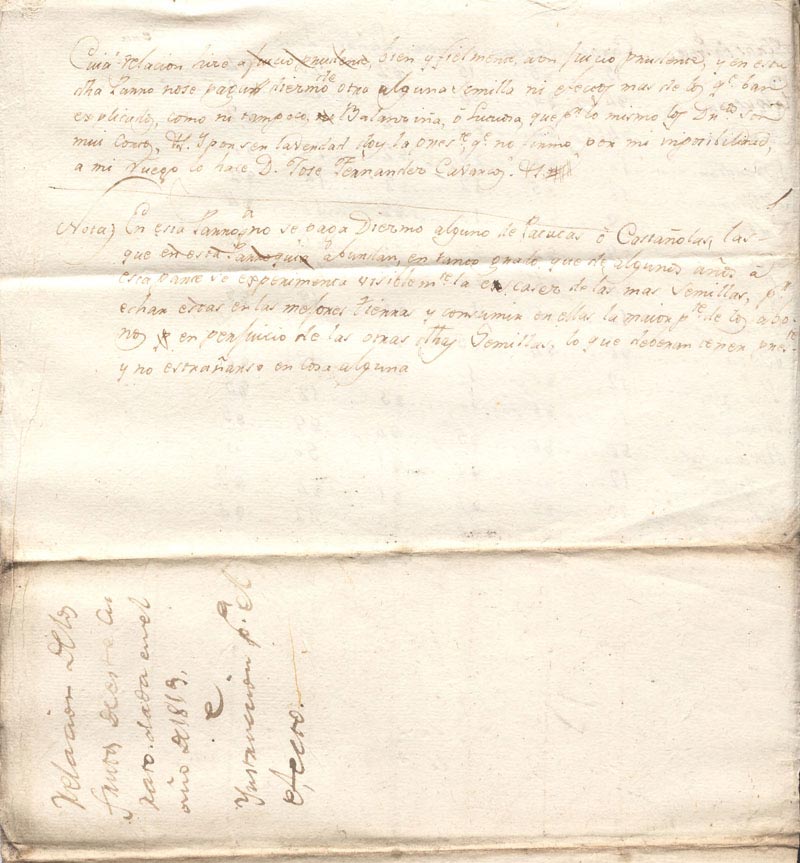 Cuia relacion hize a juicio prudente, bien y fielmente, a un juicio prudente, y en esta
dha Parro nose pagan diermo de otra alguna semilla ni efectos mas de los qe. ban
explicado, como ni tampoco, ò Luctuosa, que pr. lo mismo los Dros. son
mui cortos, Y por ser la verdad doy la preste. qe. no firmo por mi imposibilidad,
a mi Ruego lo hace D. Jose Fernandez
Nota) En esta Parroqa. no se paga Diermo alguno de Patacas ò Castañolas, las-
que en esta Parroquia abundan, en tanto grado que de algunos años à
esta parte se experimenta visiblemte. la escasez de las mas semillas, pr.
echar estas en las mejores tierras y consumir en ellas la maior pte. de los abo-
nos en perjuicio de las otras dhas Semillas, lo que deberan tener preste.
y no estrañarse en cosa alguna
Relacion de los
frutos de este Cu
rato. dada en el
año de 1819,
è
Ynstruccion pa. el
efecto.